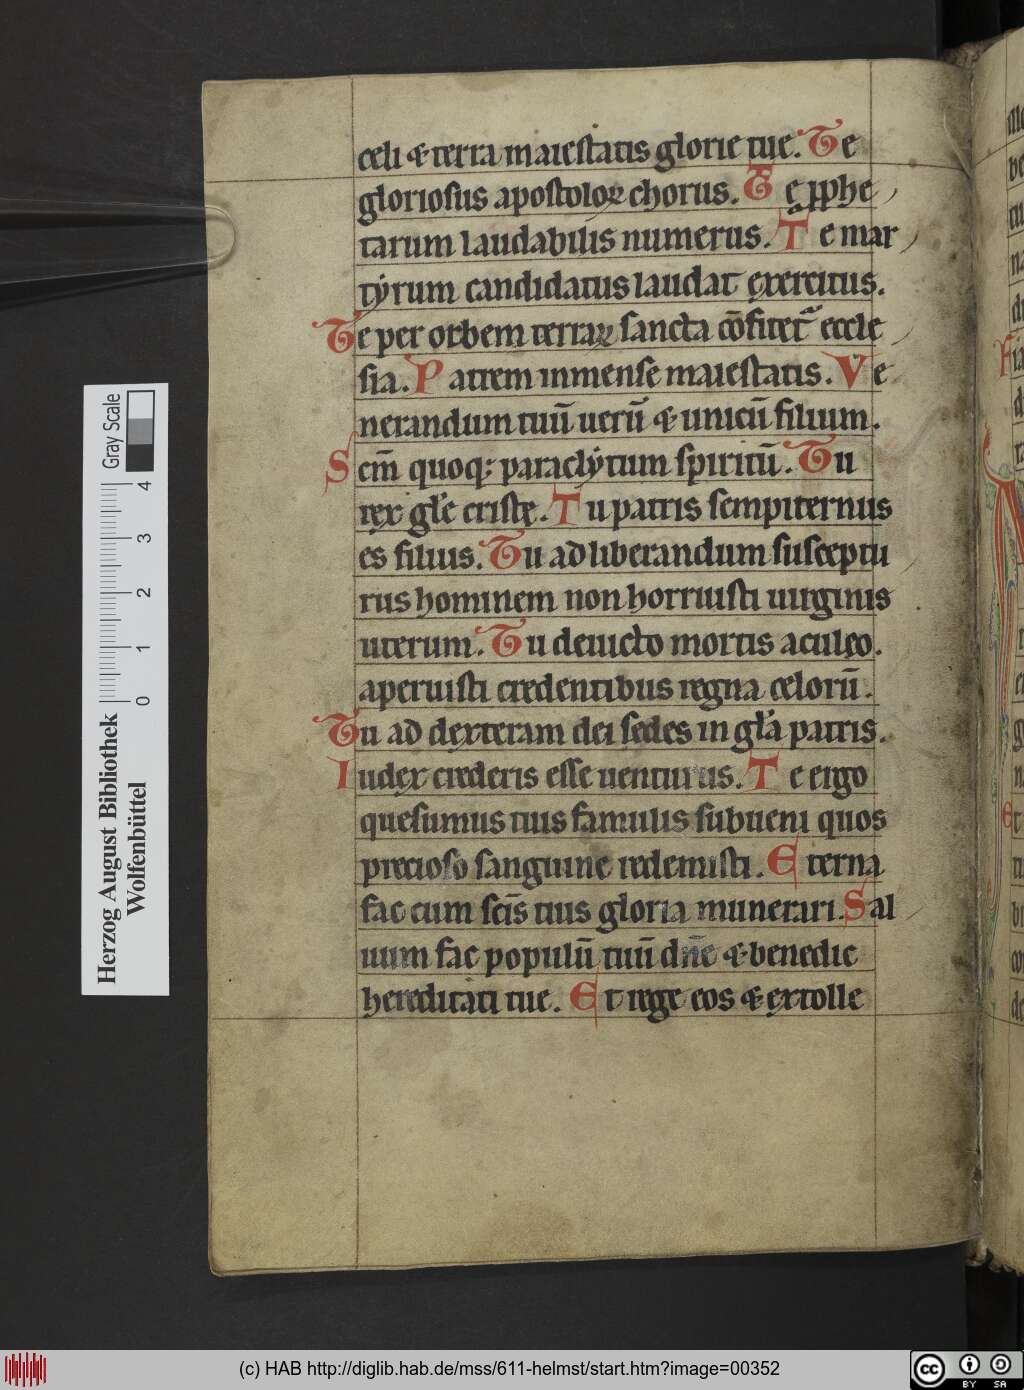 celi & terra maiestatis glorie tue. Te
gloriosus apostoloꝝ chorus. Te ꝓphe
tarum laudabilis numerus. Te mar
tẏrum candidatus laudat ęxercitus.
Te per orbem terraꝝ sancta cōfitet᷑ eccle
sia. Patrem inmense maiestatis. Ve
nerandum tuū uerū & unicū filium.
Scm̄ quoq; paraclẏtum spiritū. Tu
rex gl̓e cristę. Tu patris sempiternus
es filius. Tu ad liberandum susceptu
rus hominem non horruisti uirginis
uterum. Tu deuicto mortis aculeo.
aperuisti credentibus regna celorū.
Tu ad dexteram dei sedes in gl̓a patris.
Iudex crederis esse uenturus. Te ergo
quesumus tuis famulis subueni quos
precioso sanguine redemisti. Eterna
fac cum scīs tuis gloria munerari. Sal
uum fac populū tuū dn̄e & benedic
hereditati tue. Et rege eos & extolle
Herzog August Bibliothek
Wolfenbüttel
0 1 2 3 4
Gray Scale
(c) HAB http://diglib.hab.de/mss/611-helmst/start.htm?image=00352
cc BY SA